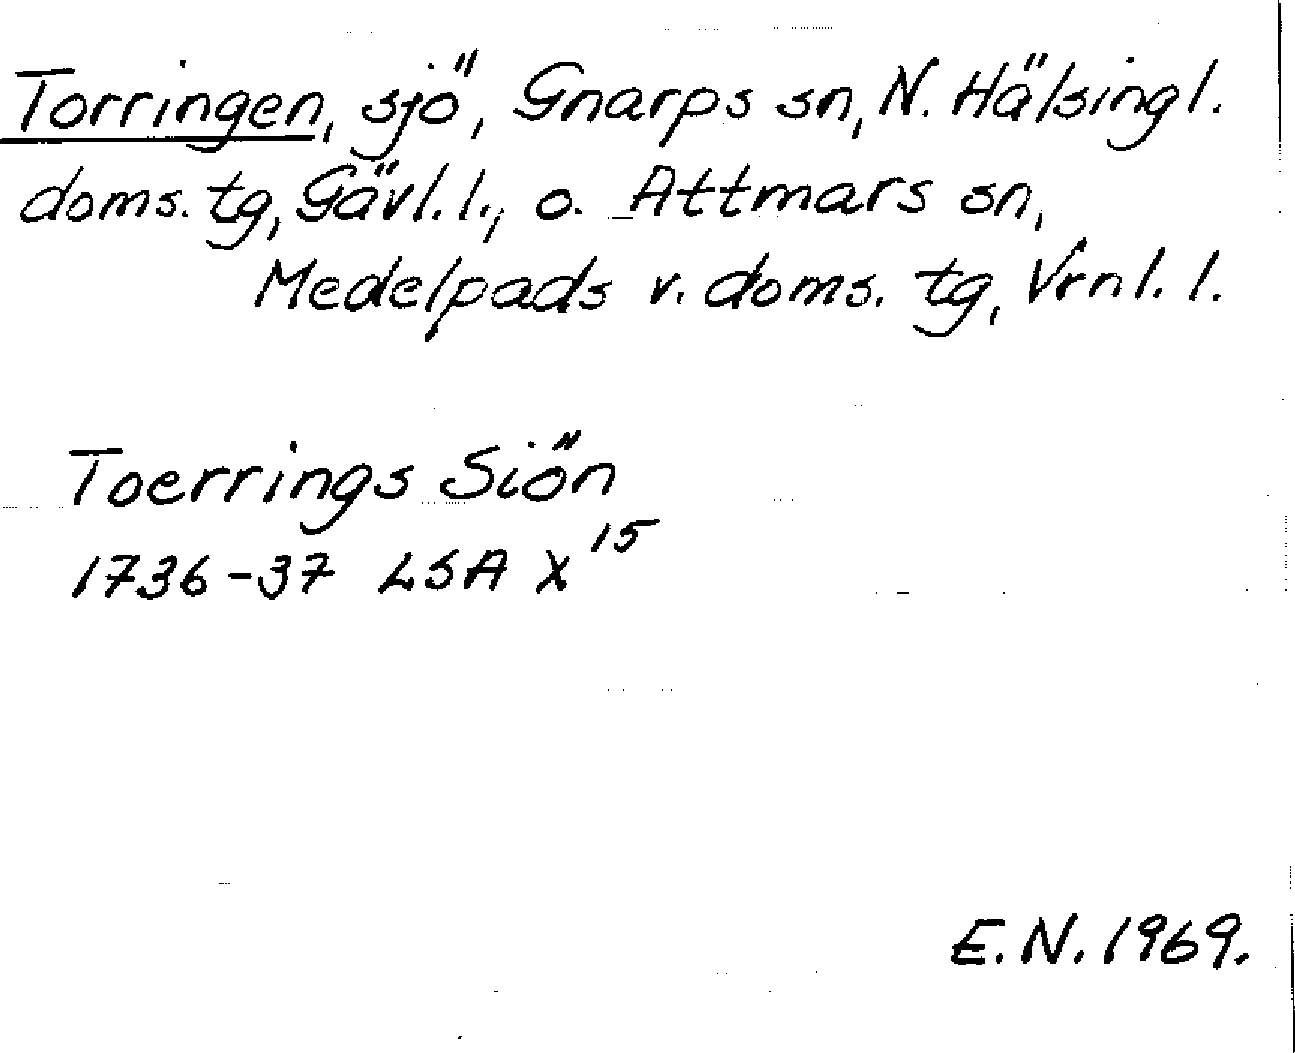 Torringen, sjö, Gnarps sn, N. Hälsingl.
doms. tg, Gävl. l., o. Attmars sn,
Medelpads v. doms. tg, Vrnl. l.
Toerrings Siön
1736-37 LSA X¹⁵
E.N. 1969.